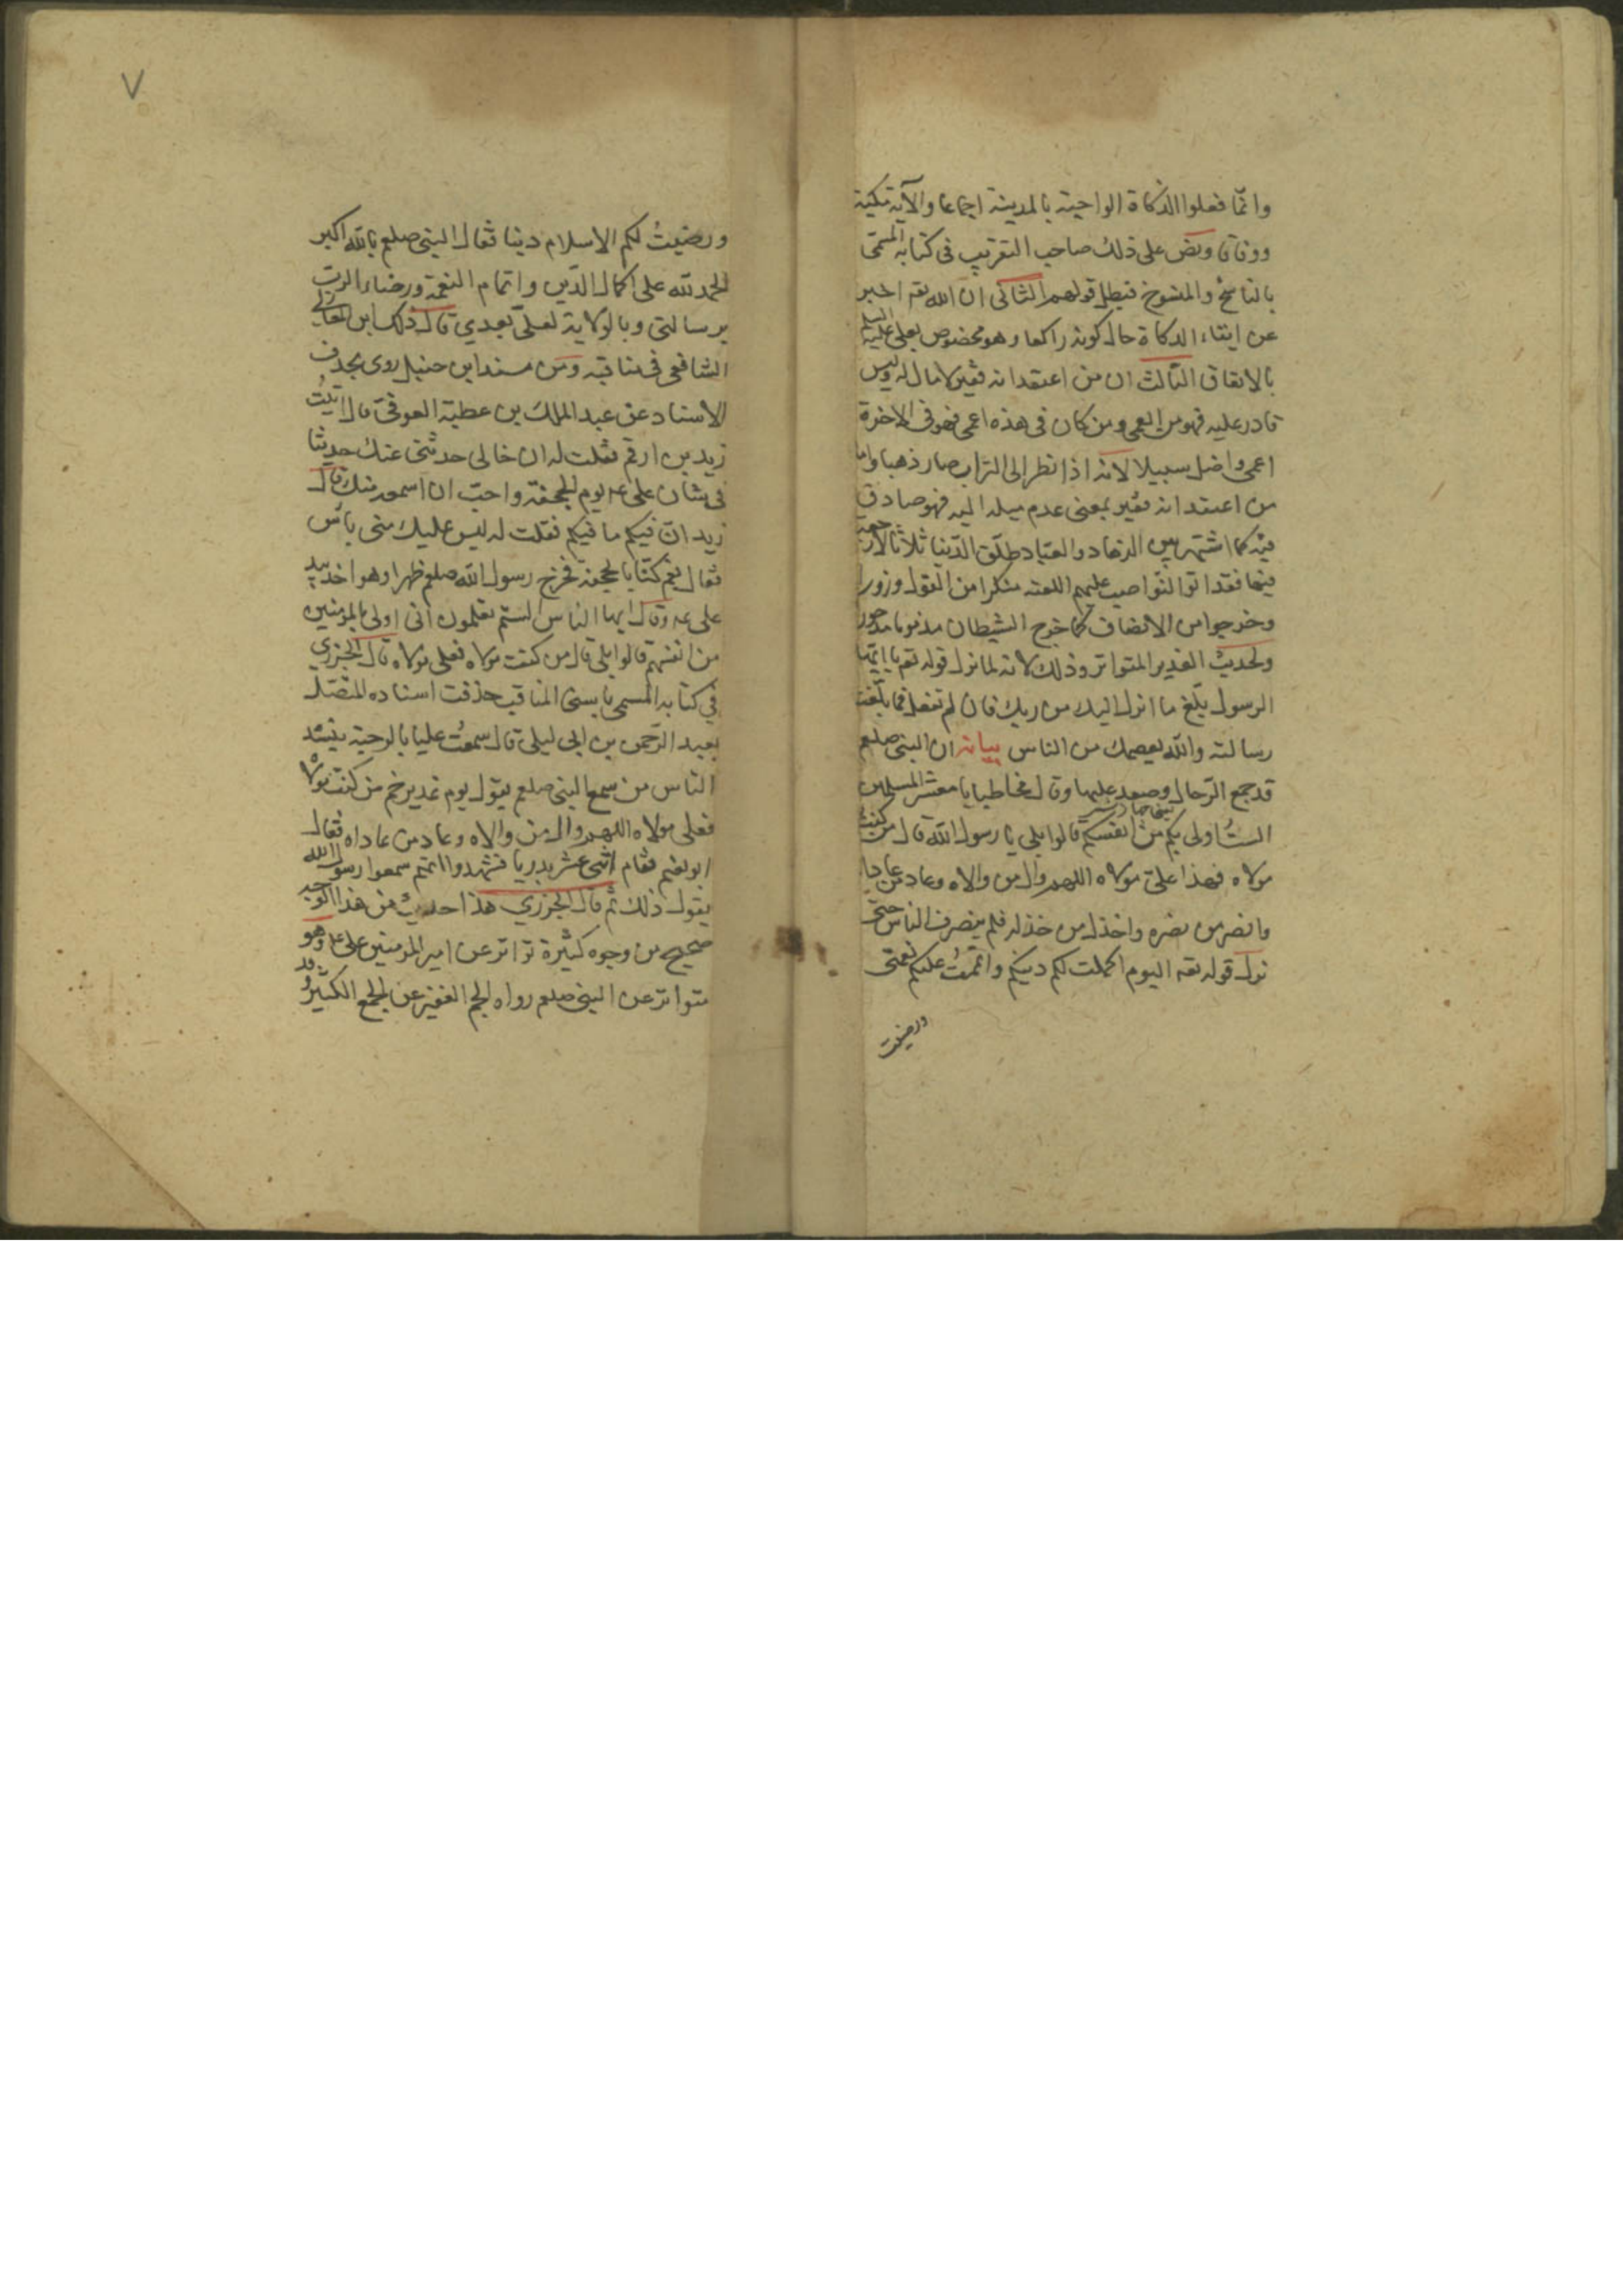 وانما فعلوا الزكاة الواجبة بالمدينة اجماعا والآية مكية
ووفاقا ونص على ذلك صاحب التقريب فى كتابه المسمى
بالناسخ والمنسوخ فبطل قولهم الثانى ان الله تعم اخبر
عن ايتاء الزكاة حال كونه راكعا وهو مخصوص بعلى عليه السلم
بالاتفاق الثالث ان من اعتقد انه فقير لا مال له وليس
قادر عليه فهو من العمى ومن كان فى هذه اعمى فهو فى الاخرة
اعمى واضل سبيلا لانه اذا نظر الى التراب صار ذهبا واما
من اعتقد انه فقير بمعنى عدم ميله اليه فهو صادق
فيه كما اشتهر بين الزهاد والعباد طلق الدنيا ثلاثا لا رجعة
فيها فقد اتوا النواصب عليهم اللعنه منكرا من القول وزورا
وخرجوا من الانصاف كما خرج الشيطان مذموما مدحورا
ولحديث الغدير المتواتر وذلك لانه لما نزل قوله تعم يا ايها
الرسول بلغ ما انزل اليك من ربك فان لم تفعل فما بلغت
رسالته والله يعصمك من الناس بيانه ان النبى صلعم
قد جمع الرحال وصعد عليها وقال مخاطبا يا معشر المسلمين
الستُ اولى بكم من انفسكم قالوا بلى يا رسول الله قال من كنت
مولاه فهذا علىّ مولاه اللهم وال من والاه وعاد من عاداه
وانصر من نصره واخذل من خذله فلم ينصرف الناس حتى
نزل قوله تعم اليوم اكملت لكم دينكم واتممتُ عليكم نعمتى
ورضيت
٧
ورضيتُ لكم الاسلام دينا فقال النبى صلعم بالله اكبر
الحمد لله على اكمال الدين واتمام النعمة ورضاء الرب
برسالتى وبالولاية لعلىّ بعدي قال ذلك ابن المغازلي
الشافعى فى مناقبه ومن مسند ابن حنبل روى بحذف
الاسناد عن عبد الملك بن عطية العوفى قال اتيتُ
زيد بن ارقم فقلت له ان خالى حدثنى عنك حديثا
فى شان على عه يوم الجحفة واحبّ ان اسمعه منك قال
زيد انّ فيكم ما فيكم فقلت له ليس عليك منى بأس
فقال نعم كنّا بالجحفة فخرج رسول الله صلعم ظهرا وهو اخذ بيد
على عه وقال ايها الناس الستم تعلمون انى اولى بالمومنين
من انفسهم قالوا بلى قال من كنت مولاه فعلى مولاه قال الجزري
في كتابه المسمى باسنى المناقب حذفت اسناده المتصل
بعبد الرحمن بن ابى ليلى قال سمعتُ عليا بالرحبة ينشد
الناس من سمع النبى صلعم يقول يوم غدير خم من كنت مولاه
فعلى مولاه اللهم وال من والاه وعاد من عاداه فقال
ابو نعيم فقام اثنى عشر بدريا فشهدوا انهم سمعوا رسول الله
يقول ذلك ثم قال الجزري هذا حديث من هذا الوجه
صحيح من وجوه كثيرة تواتر عن امير المومنين على عه وهو
متواتر عن النبى صلعم رواه الجم الغفير عن الجمع الكثير وقد